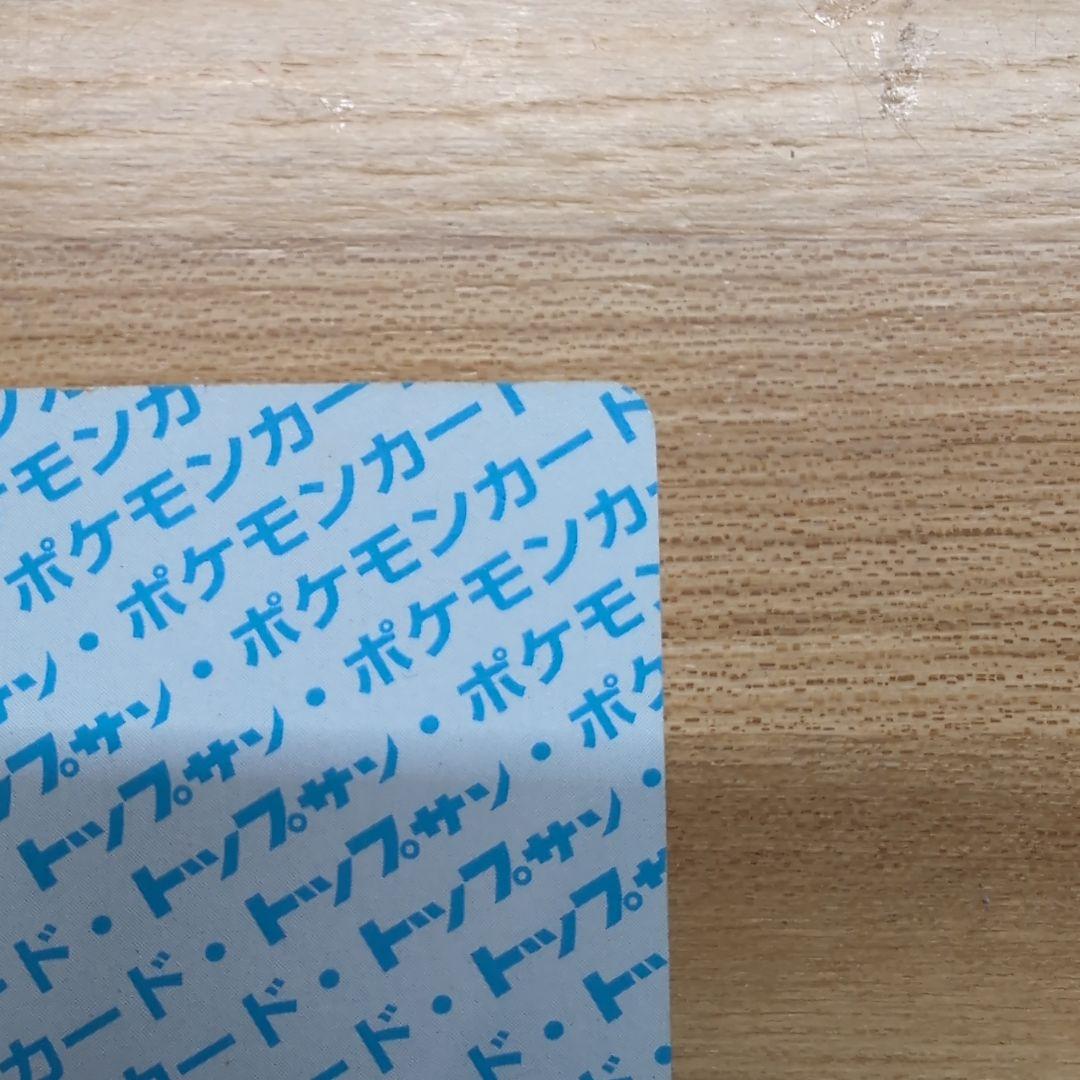 モンカ
ポケモンカー
サン・ポケモンカード
ップサン・ポケモンカード
トップサン・ポケモンカ
ード・トップサン・ポケモン
カード・トップサン・ポケ
ード・トップサン・
ード・トップサ
ド・トッ